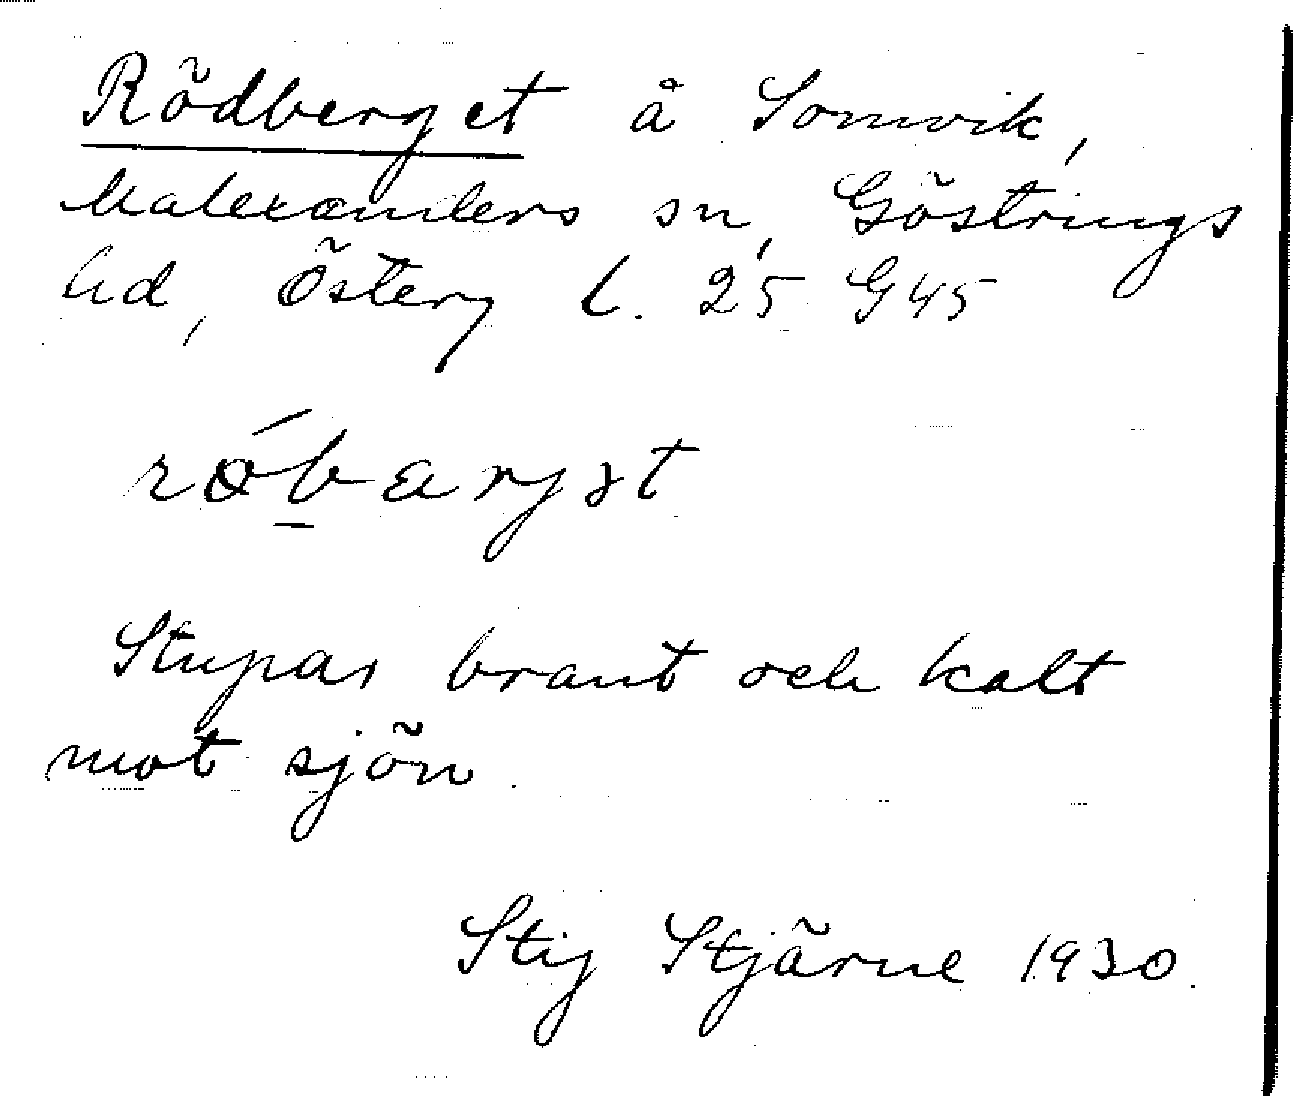 Rödberget å Somvik,
Malexanders sn, Göstrings
hd, Österg l. 25 G45
röbærjət
Stupar brant och kalt
mot sjön.
Stig Stjärne 1930.